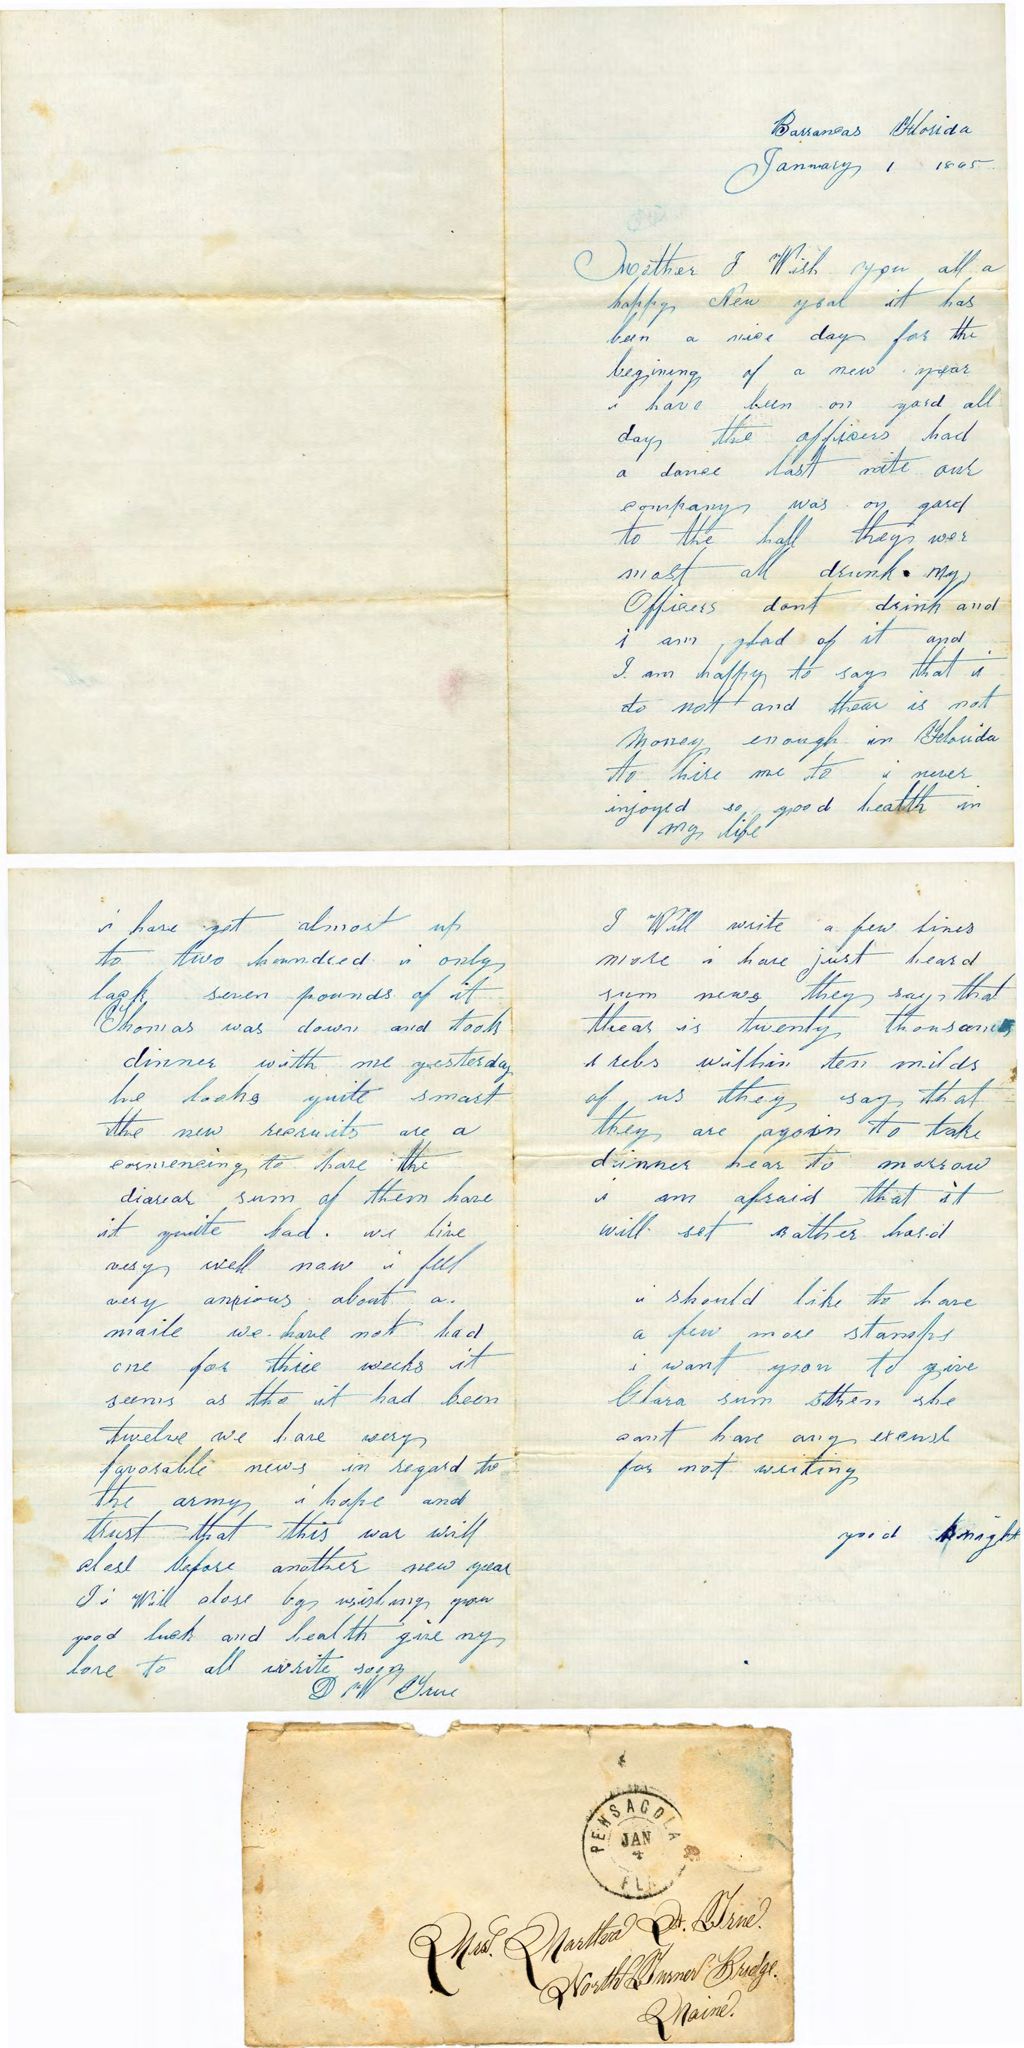 Barrancas Florida
January 1 1865
Mother I Wish you all a
happy New year it has
been a nice day for the
begining of a new year
i have been on gard all
day the officers had
a dance last nite our
company was on gard
to the hall they wer
most all drunk. my
Officers dont drink and
i am glad of it and
I am happy to say that i
do not and thear is not
Money enough in Florida
to hire me to i never
injoyed so good health in
my life
i have got almost up
to two houndred i only
lack seven pounds of it
Thomas was down and took
dinner with me yesterday
he looks quite smart
the new recruits are a
commencing to have the
diarear sum of them have
it quite bad. we live
very well now i feel
very anxious about a
maile we have not had
one for three weeks it
seems as tho it had been
twelve we have very
favorable news in regard to
the army i hope and
trust that this war will
close before another new year
I i Will close by wishing you
good luck and health give my
love to all write soon
D W True
I Will write a few lines
more i have just heard
sum news they say that
thear is twenty thousand
rebs within ten milds
of us they say that
they are agoin to take
dinner hear to morrow
i am afraid that it
will set rather hard
i should like to have
a few more stamps
i want you to give
Clara sum then she
cant have any excuse
for not writing
good knight
PENSACOLA
JAN
4
FLA
Mrs. Martha D. True.
North Turner Bridge.
Maine.